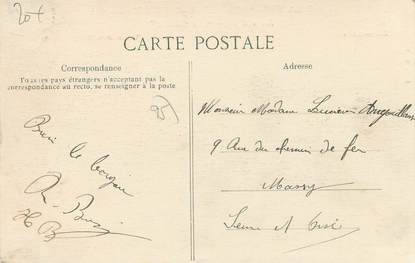 20+
CARTE POSTALE
Correspondance
Adresse
Tous les pays étrangers n'acceptent pas la
correspondance au recto, se renseigner à la poste
Monsieur Madame Lucien
9 Rue du chemin de fer
Massy
Seine et Oise
Bien le bonjour